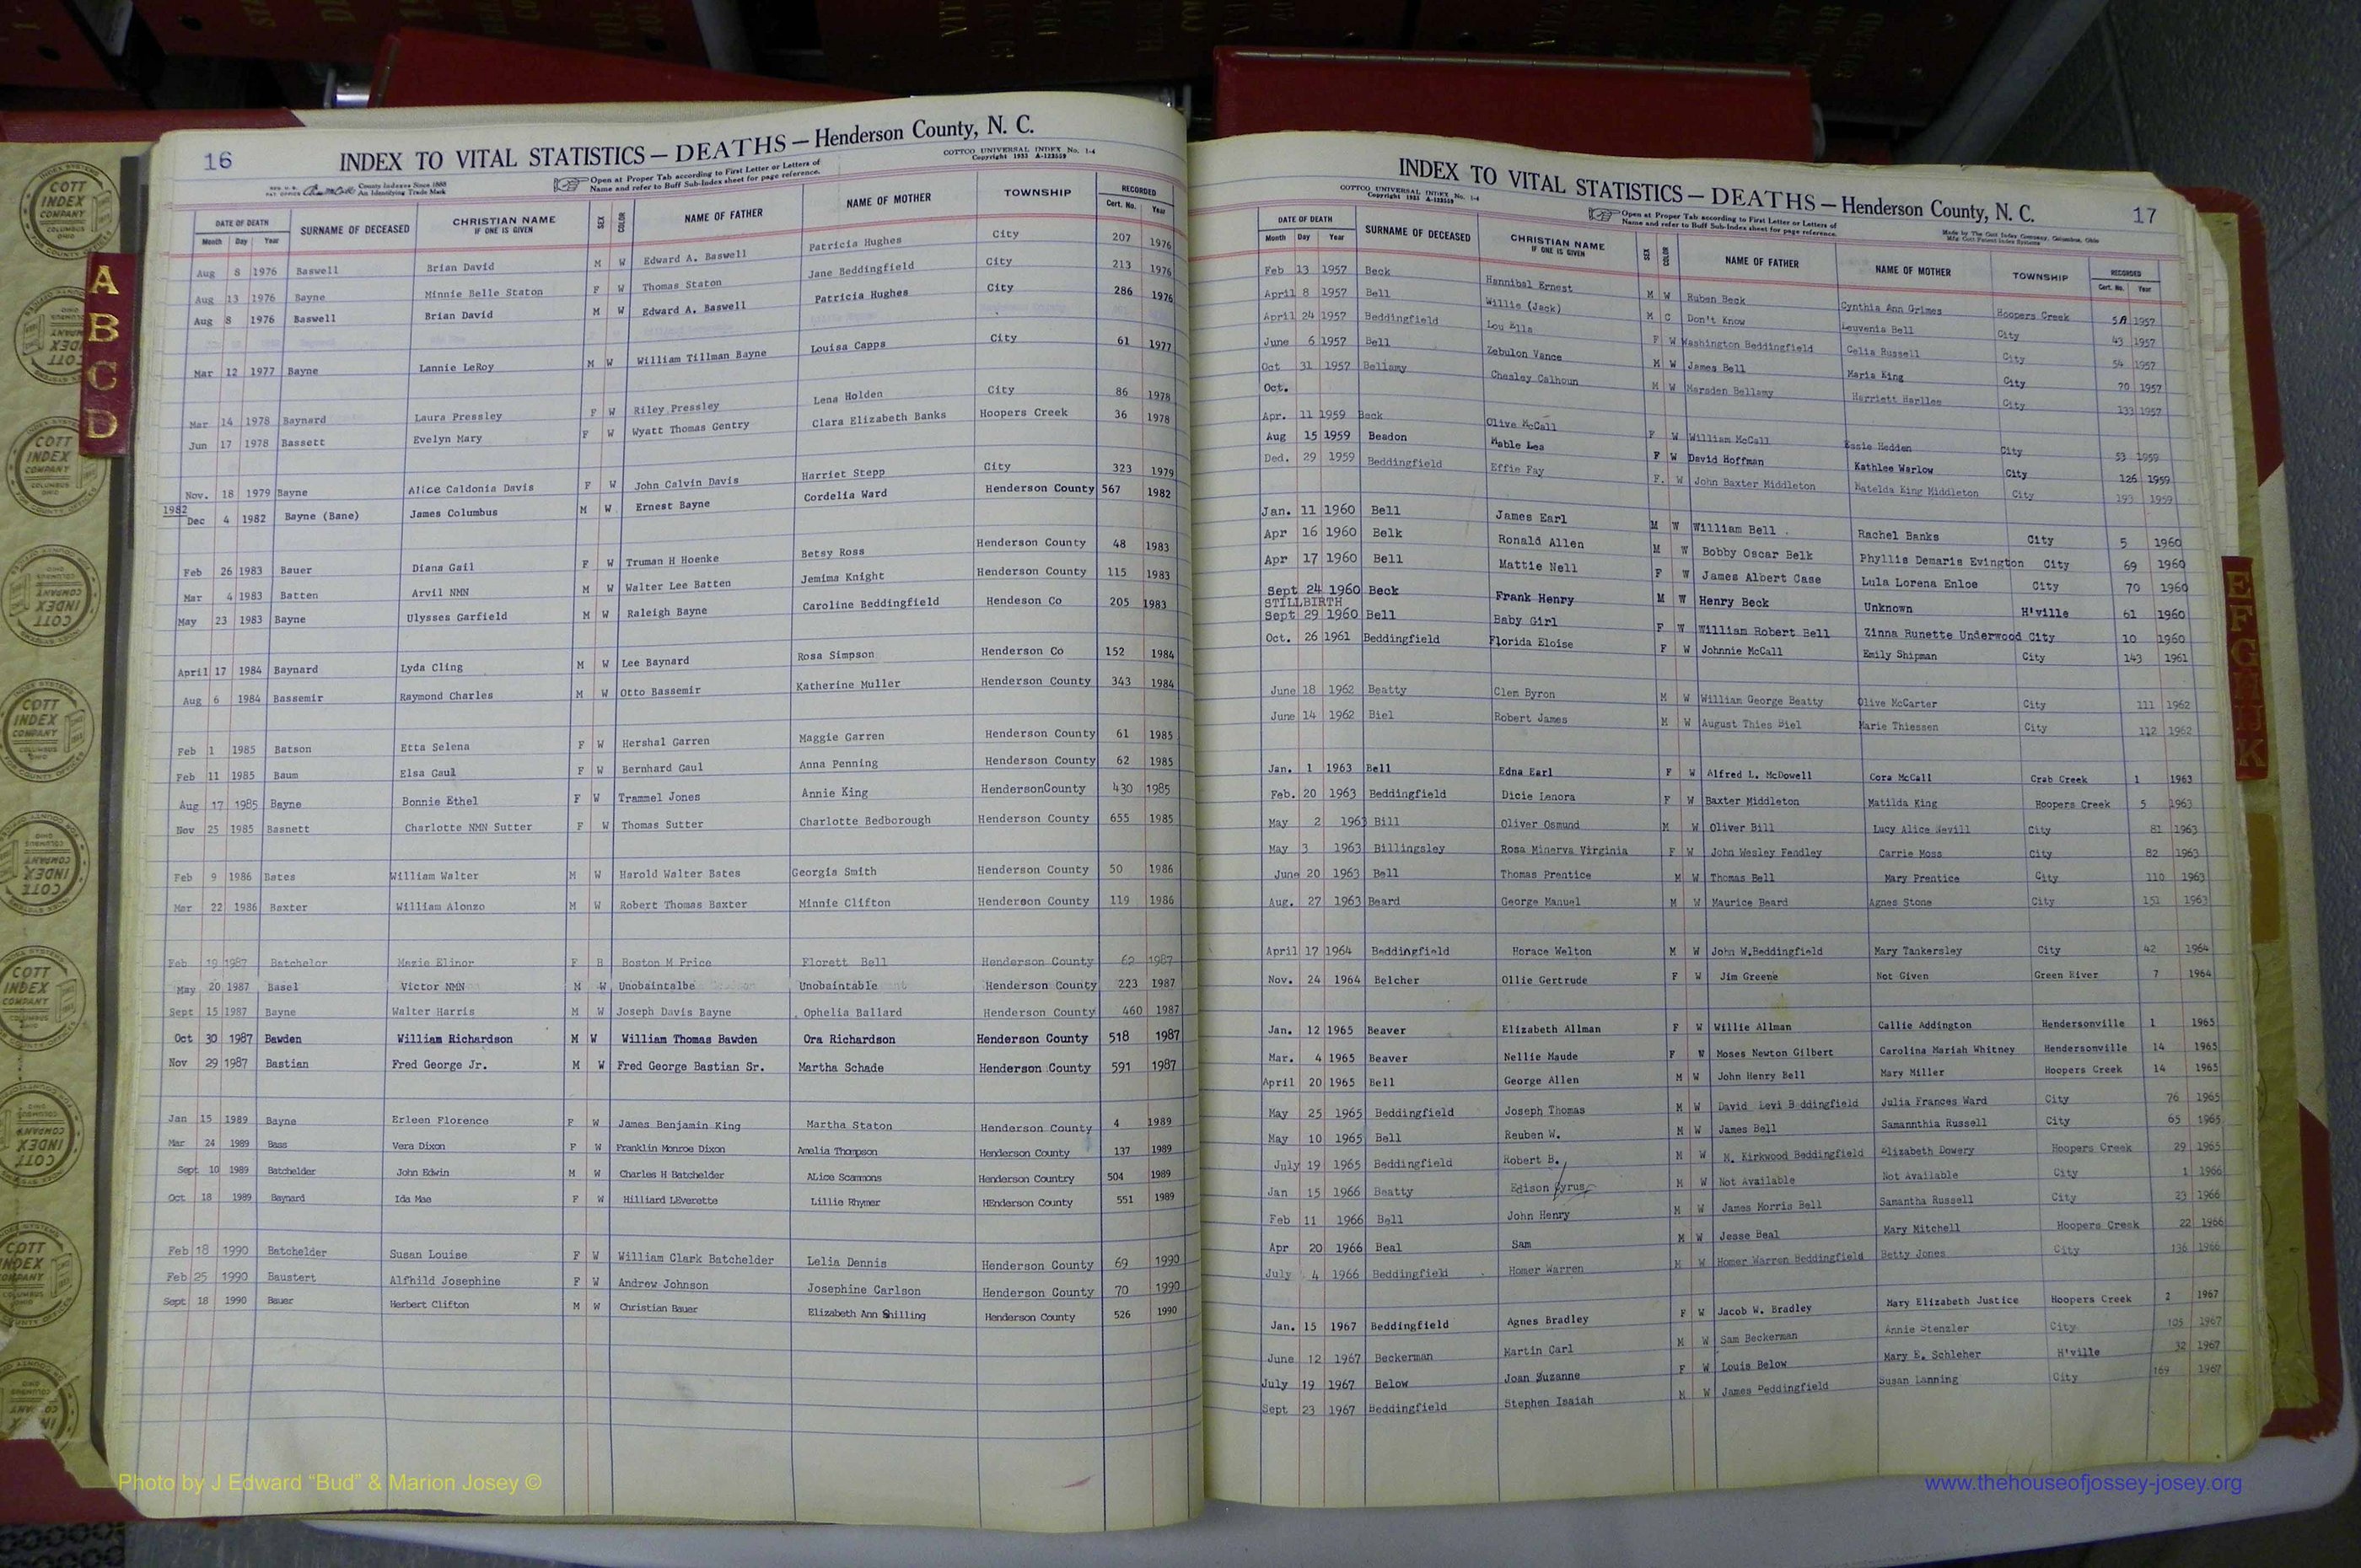 16
INDEX TO VITAL STATISTICS — DEATHS — Henderson County, N. C.
COTTCO UNIVERSAL INDEX No. 1-4
Copyright 1933 A-123559
County Indexes Since 1888
An Identifying Trade Mark
Open at Proper Tab according to First Letter or Letters of
Name and refer to Buff Sub-Index sheet for page reference.
DATE OF DEATH SURNAME OF DECEASED CHRISTIAN NAME IF ONE IS GIVEN SEX COLOR NAME OF FATHER NAME OF MOTHER TOWNSHIP RECORDED
Month Day Year Cert. No. Year
Aug 8 1976 Baswell Brian David M W Edward A. Baswell Patricia Hughes City 207 1976
Aug 13 1976 Bayne Minnie Belle Staton F W Thomas Staton Jane Beddingfield City 213 1976
Aug 8 1976 Baswell Brian David M W Edward A. Baswell Patricia Hughes City 286 1976
Mar 12 1977 Bayne Lannie LeRoy M W William Tillman Bayne Louisa Capps City 61 1977
Mar 14 1978 Baynard Laura Pressley F W Riley Pressley Lena Holden City 86 1978
Jun 17 1978 Bassett Evelyn Mary F W Wyatt Thomas Gentry Clara Elizabeth Banks Hoopers Creek 36 1978
Nov. 18 1979 Bayne Alice Caldonia Davis F W John Calvin Davis Harriet Stepp City 323 1979
1982
Dec 4 1982 Bayne (Bane) James Columbus M W Ernest Bayne Cordelia Ward Henderson County 567 1982
Feb 26 1983 Bauer Diana Gail F W Truman H Hoenke Betsy Ross Henderson County 48 1983
Mar 4 1983 Batten Arvil NMN M W Walter Lee Batten Jemima Knight Henderson County 115 1983
May 23 1983 Bayne Ulysses Garfield M W Raleigh Bayne Caroline Beddingfield Hendeson Co 205 1983
April 17 1984 Baynard Lyda Cling M W Lee Baynard Rosa Simpson Henderson Co 152 1984
Aug 6 1984 Bassemir Raymond Charles M W Otto Bassemir Katherine Muller Henderson County 343 1984
Feb 1 1985 Batson Etta Selena F W Hershal Garren Maggie Garren Henderson County 61 1985
Feb 11 1985 Baum Elsa Gaul F W Bernhard Gaul Anna Penning Henderson County 62 1985
Aug 17 1985 Bayne Bonnie Ethel F W Trammel Jones Annie King HendersonCounty 430 1985
Nov 25 1985 Basnett Charlotte NMN Sutter F W Thomas Sutter Charlotte Bedborough Henderson County 655 1985
Feb 9 1986 Bates William Walter M W Harold Walter Bates Georgia Smith Henderson County 50 1986
Mar 22 1986 Baxter William Alonzo M W Robert Thomas Baxter Minnie Clifton Henderson County 119 1986
Feb 19 1987 Batchelor Mazie Elinor F B Boston M Price Florett Bell Henderson County 62 1987
May 20 1987 Basel Victor NMN M W Unobaintalbe Unobaintable Henderson County 223 1987
Sept 15 1987 Bayne Walter Harris M W Joseph Davis Bayne Ophelia Ballard Henderson County 460 1987
Oct 30 1987 Bawden William Richardson M W William Thomas Bawden Ora Richardson Henderson County 518 1987
Nov 29 1987 Bastian Fred George Jr. M W Fred George Bastian Sr. Martha Schade Henderson County 591 1987
Jan 15 1989 Bayne Erleen Florence F W James Benjamin King Martha Staton Henderson County 4 1989
Mar 24 1989 Bass Vera Dixon F W Franklin Monroe Dixon Amelia Thompson Henderson County 137 1989
Sept 10 1989 Batchelder John Edwin M W Charles H Batchelder ALice Scammons Henderson Country 504 1989
Oct 18 1989 Baynard Ida Mae F W Hilliard LEverette Lillie Rhymer HEnderson County 551 1989
Feb 18 1990 Batchelder Susan Louise F W William Clark Batchelder Lelia Dennis Henderson County 69 1990
Feb 25 1990 Baustert Alfhild Josephine F W Andrew Johnson Josephine Carlson Henderson County 70 1990
Sept 18 1990 Bauer Herbert Clifton M W Christian Bauer Elizabeth Ann Shilling Henderson County 526 1990
17
INDEX TO VITAL STATISTICS — DEATHS — Henderson County, N. C.
COTTCO UNIVERSAL INDEX No. 1-4
Copyright 1933 A-123559
Open at Proper Tab according to First Letter or Letters of
Name and refer to Buff Sub-Index sheet for page reference.
Made by The Cott Index Company, Columbus, Ohio
DATE OF DEATH SURNAME OF DECEASED CHRISTIAN NAME IF ONE IS GIVEN SEX COLOR NAME OF FATHER NAME OF MOTHER TOWNSHIP RECORDED
Month Day Year Cert. No. Year
Feb 13 1957 Beck Hannibal Ernest M W Ruben Beck Cynthia Ann Grimes Hoopers Creek 1957
April 8 1957 Bell Willie (Jack) M C Don't Know Leuvenia Bell City 43 1957
April 24 1957 Beddingfield Lou Ella F W Washington Beddingfield Celia Russell City 54 1957
June 6 1957 Bell Zebulon Vance M W James Bell Maria King City 70 1957
Oct 31 1957 Bellamy Chesley Calhoun M W Marsden Bellamy Harriett Harllee City 133 1957
Oct.
Apr. 11 1959 Beck Olive McCall F W William McCall Essie Hedden City 53 1959
Aug 15 1959 Beadon Mable Lea F W David Hoffman Kathlee Warlow City 126 1959
Ded. 29 1959 Beddingfield Effie Fay F. W John Baxter Middleton Matelda King Middleton City 193 1959
Jan. 11 1960 Bell James Earl M W William Bell Rachel Banks City 5 1960
Apr 16 1960 Belk Ronald Allen M W Bobby Oscar Belk Phyllis Demaris Evington City 69 1960
Apr 17 1960 Bell Mattie Nell F W James Albert Case Lula Lorena Enloe City 70 1960
Sept 24 1960 Beck Frank Henry M W Henry Beck Unknown H'ville 61 1960
STILLBIRTH
Sept 29 1960 Bell Baby Girl F W William Robert Bell Zinna Runette Underwood City 10 1960
Oct. 26 1961 Beddingfield Florida Eloise F W Johnnie McCall Emily Shipman City 143 1961
June 18 1962 Beatty Clem Byron M W William George Beatty Olive McCarter City 111 1962
June 14 1962 Biel Robert James M W August Thies Biel Marie Thiessen City 112 1962
Jan. 1 1963 Bell Edna Earl F W Alfred L. McDowell Cora McCall Crab Creek 1 1963
Feb. 20 1963 Beddingfield Dicie Lenora F W Baxter Middleton Matilda King Hoopers Creek 5 1963
May 2 1963 Bill Oliver Osmund M W Oliver Bill Lucy Alice Nevill City 81 1963
May 3 1963 Billingsley Rosa Minerva Virginia F W John Wesley Fendley Carrie Moss City 82 1963
June 20 1963 Bell Thomas Prentice M W Thomas Bell Mary Prentice City 110 1963
Aug. 27 1963 Beard George Manuel M W Maurice Beard Agnes Stone City 151 1963
April 17 1964 Beddingfield Horace Welton M W John W.Beddingfield Mary Tankersley City 42 1964
Nov. 24 1964 Belcher Ollie Gertrude F W Jim Greene Not Given Green River 7 1964
Jan. 12 1965 Beaver Elizabeth Allman F W Willie Allman Callie Addington Hendersonville 1 1965
Mar. 4 1965 Beaver Nellie Maude F W Moses Newton Gilbert Carolina Mariah Whitney Hendersonville 14 1965
April 20 1965 Bell George Allen M W John Henry Bell Mary Miller Hoopers Creek 14 1965
May 25 1965 Beddingfield Joseph Thomas M W David Levi B ddingfield Julia Frances Ward City 76 1965
May 10 1965 Bell Reuben W. M W James Bell Samannthia Russell City 65 1965
July 19 1965 Beddingfield Robert B. M W M. Kirkwood Beddingfield Elizabeth Dowery Hoopers Creek 29 1965
Jan 15 1966 Beatty Edison Cyrus M W Not Available Not Available City 1 1966
Feb 11 1966 Bell John Henry M W James Morris Bell Samantha Russell City 23 1966
Apr 20 1966 Beal Sam M W Jesse Beal Mary Mitchell Hoopers Creek 22 1966
July 4 1966 Beddingfield Homer Warren M W Homer Warren Beddingfield Betty Jones City 136 1966
Jan. 15 1967 Beddingfield Agnes Bradley F W Jacob W. Bradley Mary Elizabeth Justice Hoopers Creek 2 1967
June 12 1967 Beckerman Martin Carl M W Sam Beckerman Annie Stenzler City 105 1967
July 19 1967 Below Joan Suzanne F W Louis Below Mary E. Schleher H'ville 32 1967
Sept 23 1967 Beddingfield Stephen Isaiah M W James Beddingfield Susan Lanning City 169 1967
A
B
C
D
E
F
G
H
IJ
K
COTT INDEX COMPANY COLUMBUS OHIO
Photo by J Edward “Bud” & Marion Josey ©
www.thehouseofjossey-josey.org